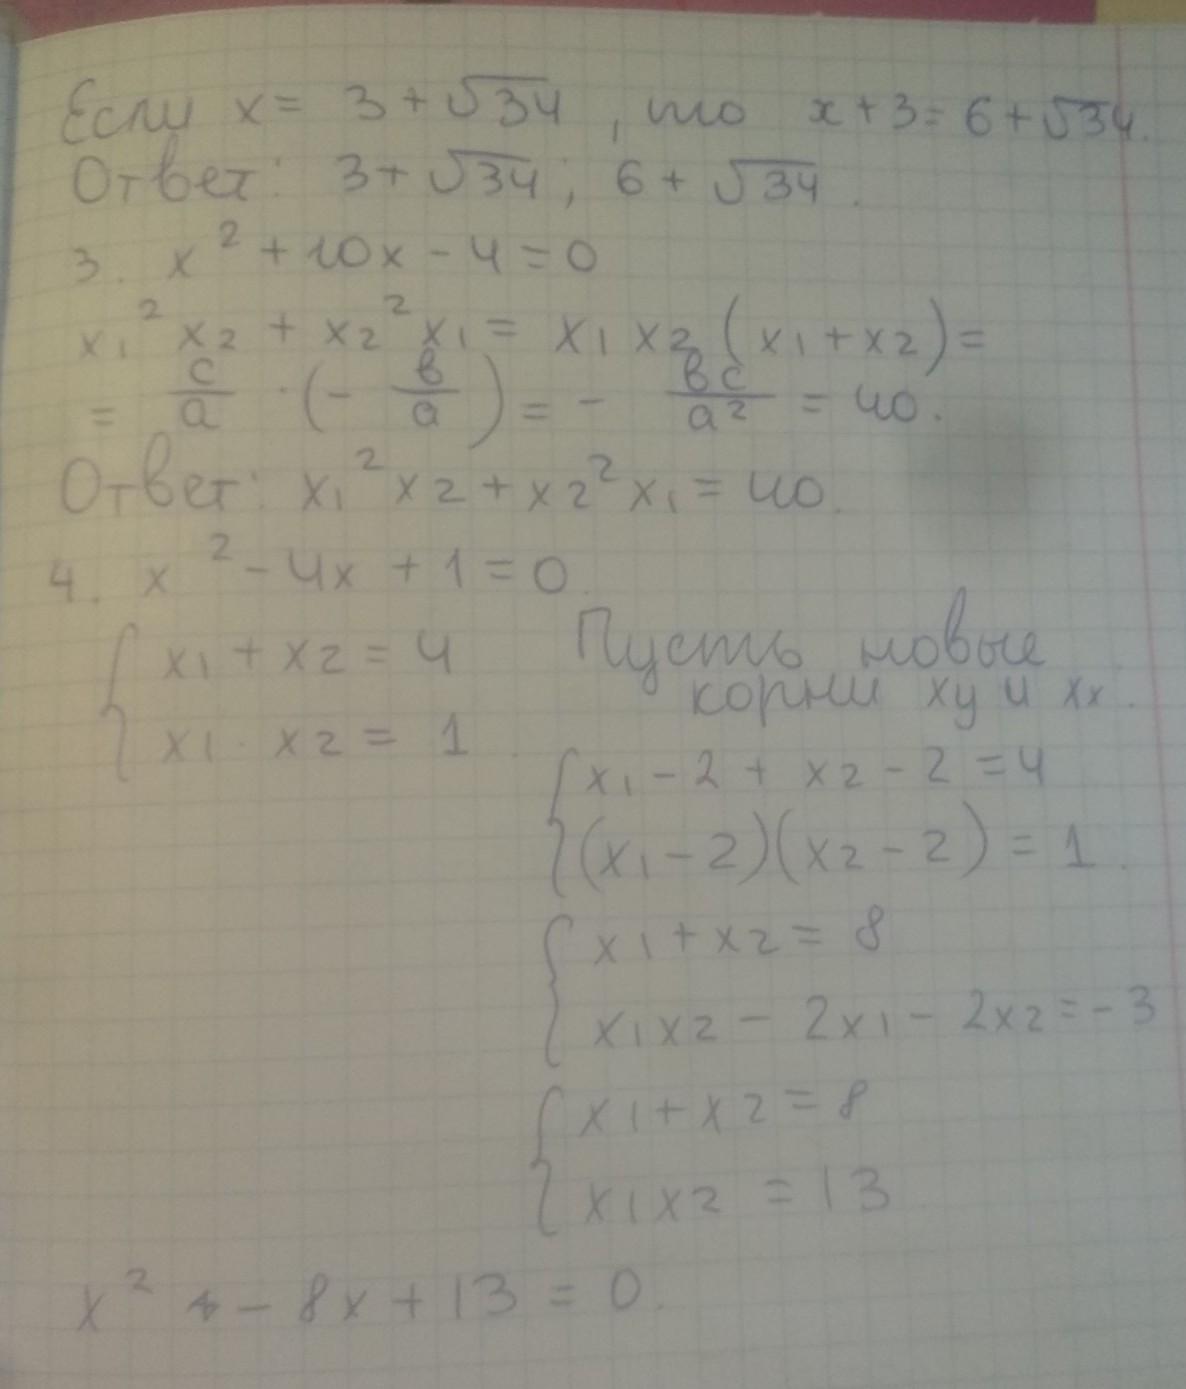 Если x = 3 + √34, то x + 3 = 6 + √34.
Ответ: 3 + √34; 6 + √34.
3. x² + 10x - 4 = 0
x₁²x₂ + x₂²x₁ = x₁x₂(x₁ + x₂) =
= c/a · (- в/a) = - вc/a² = 40.
Ответ: x₁²x₂ + x₂²x₁ = 40.
4. x² - 4x + 1 = 0.
{ x₁ + x₂ = 4
x₁ · x₂ = 1.
Пусть новые
корни xy и xx.
{ x₁ - 2 + x₂ - 2 = 4
(x₁ - 2)(x₂ - 2) = 1.
{ x₁ + x₂ = 8
x₁x₂ - 2x₁ - 2x₂ = -3
{ x₁ + x₂ = 8
x₁x₂ = 13
x² - 8x + 13 = 0.